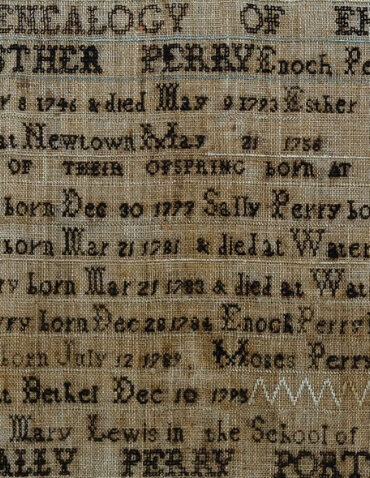 ENEALOGY OF EN
STHER PERRY Enoch Pe
r 8 1746 & died May 9 1793 Esther
at Newtown May 21 1756
OF THEIR OFSPRING born AT
born Dec 30 1777 Sally Perry bo
born Mar 21 1781 & died at Water
ry born Mar 21 1783 & died at Wat
rry born Dec 28 1784 Enoch Perry
born July 12 1789 Moses Perry
at Bethel Dec 10 1795
Mary Lewis in the School of
ALLY PERRY PORT